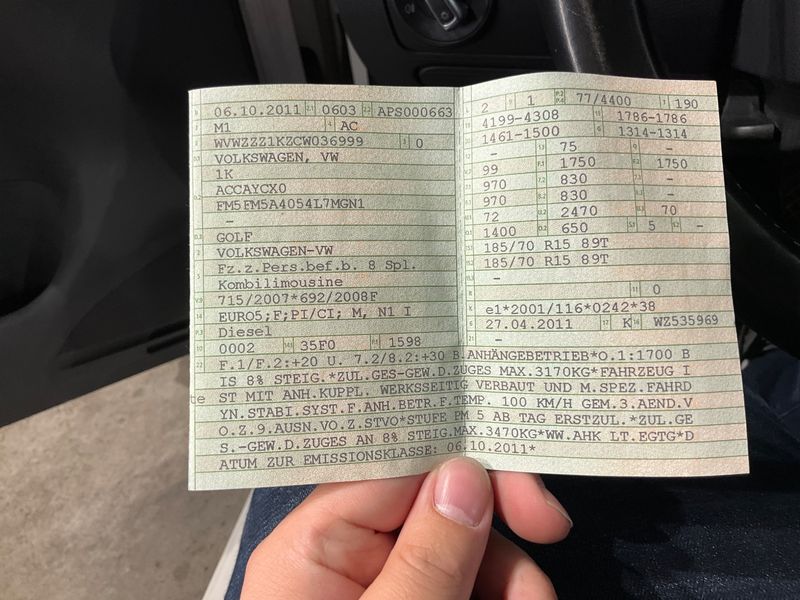 06.10.2011 0603 APS000663
M1 AC
WVWZZZ1KZCW036999 0
VOLKSWAGEN, VW
1K
ACCAYCX0
FM5FM5A4054L7MGN1
-
GOLF
VOLKSWAGEN-VW
Fz.z.Pers.bef.b. 8 Spl.
Kombilimousine
715/2007*692/2008F
EURO5;F;PI/CI; M, N1 I
Diesel
0002 35F0 1598
2 1 77/4400 190
4199-4308 1786-1786
1461-1500 1314-1314
- 75 -
99 1750 1750
970 830 -
970 830 -
72 2470 70
1400 650 5 -
185/70 R15 89T
185/70 R15 89T
-
0
e1*2001/116*0242*38
27.04.2011 K WZ535969
-
F.1/F.2:+20 U. 7.2/8.2:+30 B.ANHÄNGEBETRIEB*O.1:1700 B
IS 8% STEIG.*ZUL.GES-GEW.D.ZUGES MAX.3170KG*FAHRZEUG I
ST MIT ANH.KUPPL. WERKSSEITIG VERBAUT UND M.SPEZ.FAHRD
YN.STABI.SYST.F.ANH.BETR.F.TEMP. 100 KM/H GEM.3.AEND.V
O.Z.9.AUSN.VO.Z.STVO*STUFE PM 5 AB TAG ERSTZUL.*ZUL.GE
S.-GEW.D.ZUGES AN 8% STEIG.MAX.3470KG*WW.AHK LT.EGTG*D
ATUM ZUR EMISSIONSKLASSE: 06.10.2011*